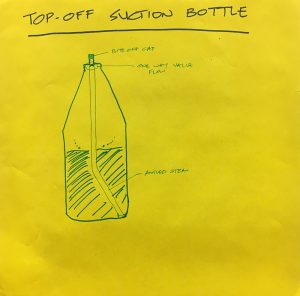 TOP-OFF SUCTION BOTTLE
BITE OFF CAP
ONE WAY VALVE
FLOW
ANGLED STEM